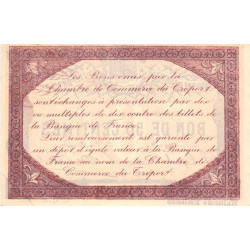 Les Bons émis par la
Chambre de Commerce du Tréport
sont échangés à présentation par dix
ou multiples de dix contre des billets de
la Banque de France.
Leur remboursement est garanti par
un dépôt d'égale valeur à la Banque de
France au nom de la Chambre de
Commerce du Tréport.